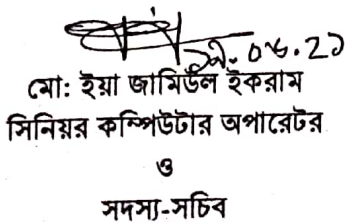 মো: ইয়া জামিউল ইকরাম
সিনিয়র কম্পিউটার অপারেটর
ও
সদস্য-সচিব